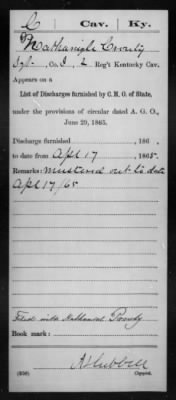 C Cav. Ky.
Nathaniel
Co. 2 Reg't Kentucky Cav.
Appears on a
List of Discharges furnished by C. M. O. of State,
under the provisions of circular dated A. G. O.,
June 29, 1865.
Discharge furnished , 186 ,
to date from Apl 17 , 1865.
Remarks: mustered out to date
Apl 17/65
Filed with Nathaniel
Book mark:
(656) Copyist.